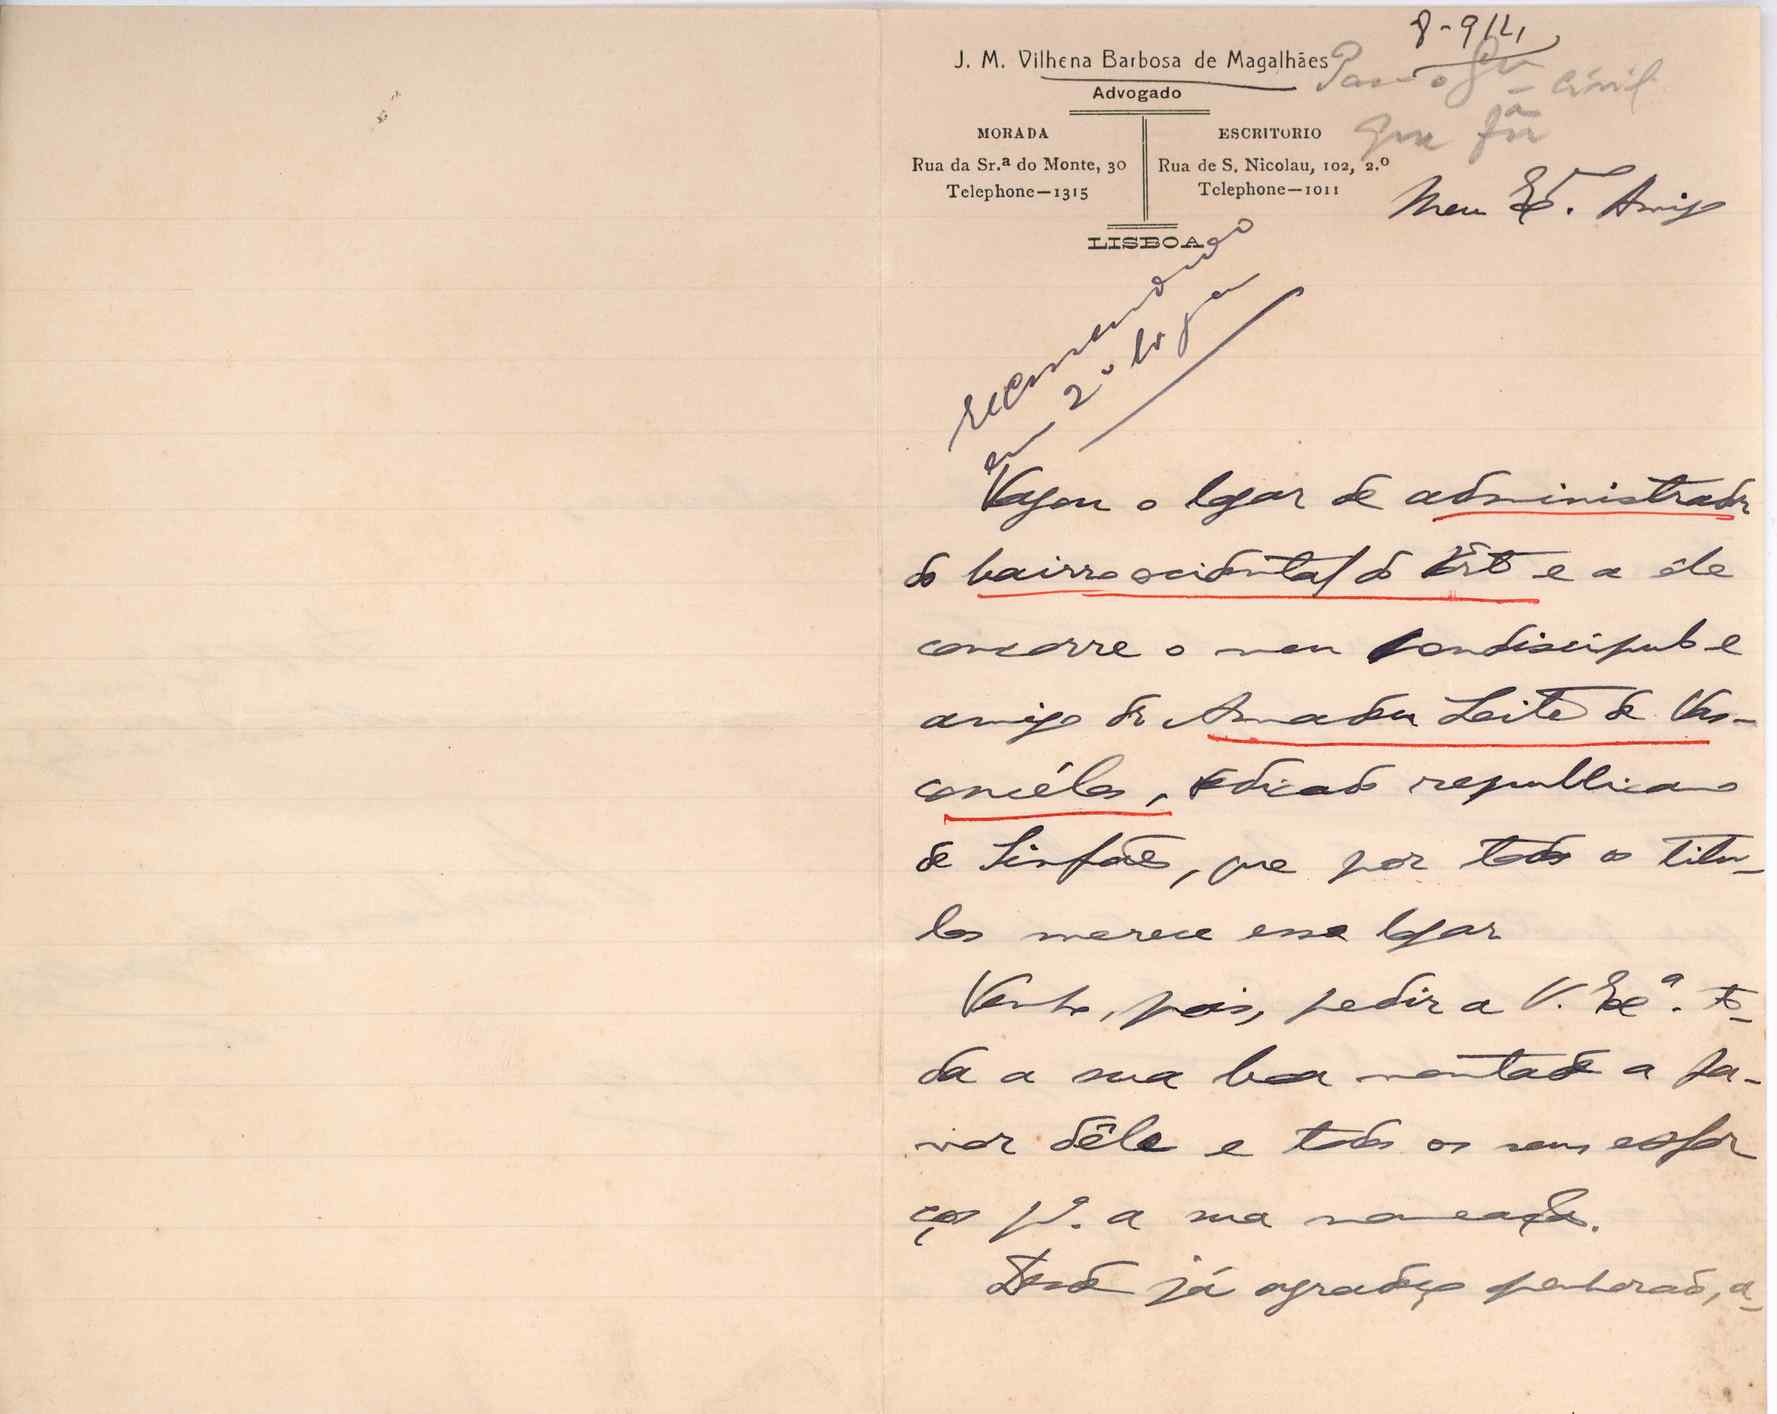 8-9/11
J. M. Vilhena Barbosa de Magalhães
Advogado
civil
MORADA
Rua da Sr.ª do Monte, 30
Telephone—1315
ESCRITORIO
Rua de S. Nicolau, 102, 2.º
Telephone—1011
LISBOA
Meu Ex.º Amigo
recommendado
em 2º logar
Vagou o logar de administrador
do bairro ocidental do Pôrto e a ele
concorre o meu condiscipulo e
amigo dr Amadeu Leite de Vas-
concélos, dedicado republicano
de Sinfães, que por todos os titu-
los merece esse logar
Venho, pois, pedir a V. Exª. to-
da a sua boa vontade a fa-
vor dêle e todos os seus esfor
ços pª. a sua nomeação.
Desde já agradeço penhorado, a-